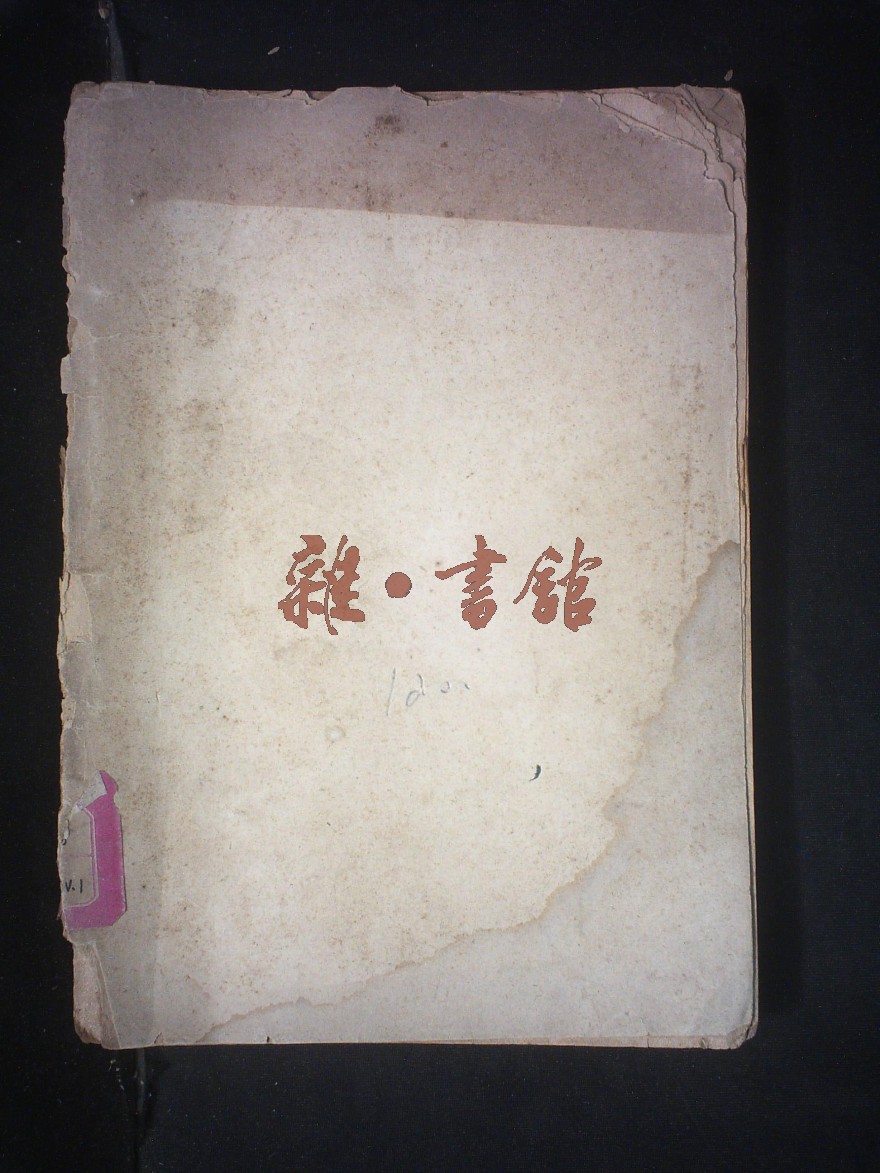 雜·書館
V.1